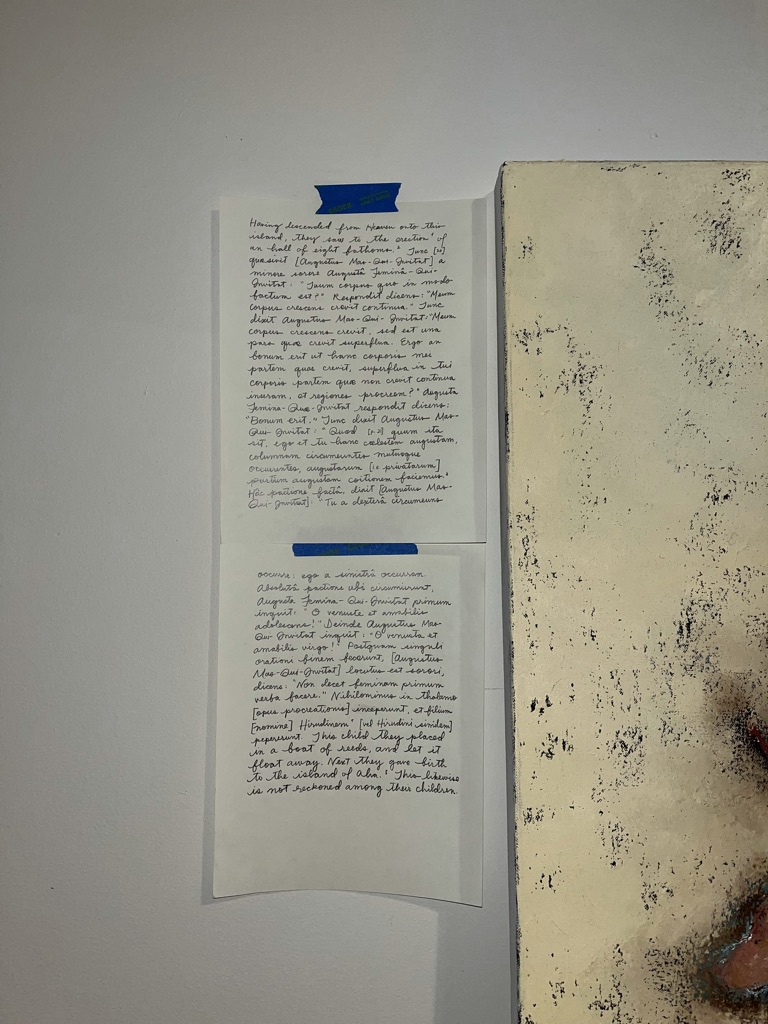 Having descended from Heaven onto this
island, they saw to the erection of
an hall of eight fathoms. Tunc
quaesivit [Augustus Mas-Qui-Invitat] a
minore sorore Augustâ Feminâ-Qui-
Invitat: "Tuum corpus quo in modo
factum est?" Respondit dicens: "Meum
corpus crescens crevit continua." Tunc
dixit Augustus Mas-Qui-Invitat: "Meum
corpus crescens crevit, sed est una
pars quae crevit superflua. Ergo an
bonum erit ut hanc corporis mei
partem quae crevit, superflua in tui
corporis partem quae non crevit continua
inseram, et regiones procreem?" Augusta
Femina-Qui-Invitat respondit dicens:
"Bonum erit." Tunc dixit Augustus Mas-
Qui-Invitat: "Quod quum ita
sit, ego et tu hanc caelestem augustam,
columnam circumeuntes mutuoque
occurrentes, augustarum [i.e. privatarum]
partium augustam coitionem faciemus."
Hâc pactione factâ, dixit [Augustus Mas-
Qui-Invitat]: "Tu a dexterâ circumeuns
occurre: ego a sinistrâ occurram.
Absolutâ pactione ubi circumierunt,
Augusta Femina-Qui-Invitat primum
inquit: "O venuste et amabilis
adolescens!" Deinde Augustus Mas-
Qui-Invitat inquit: "O venusta et
amabilis virgo!" Postquam singuli
orationi finem fecerunt, [Augustus
Mas-Qui-Invitat] locutus est sorori,
dicens: "Non decet feminam primum
verba facere." Nihilominus in thalamo
[opus procreationis] inceperunt, et filium
[nomine] Hirudinem [vel Hirudini similem]
pepererunt. This child they placed
in a boat of reeds, and let it
float away. Next they gave birth
to the island of Aha. This likewise
is not reckoned among their children.